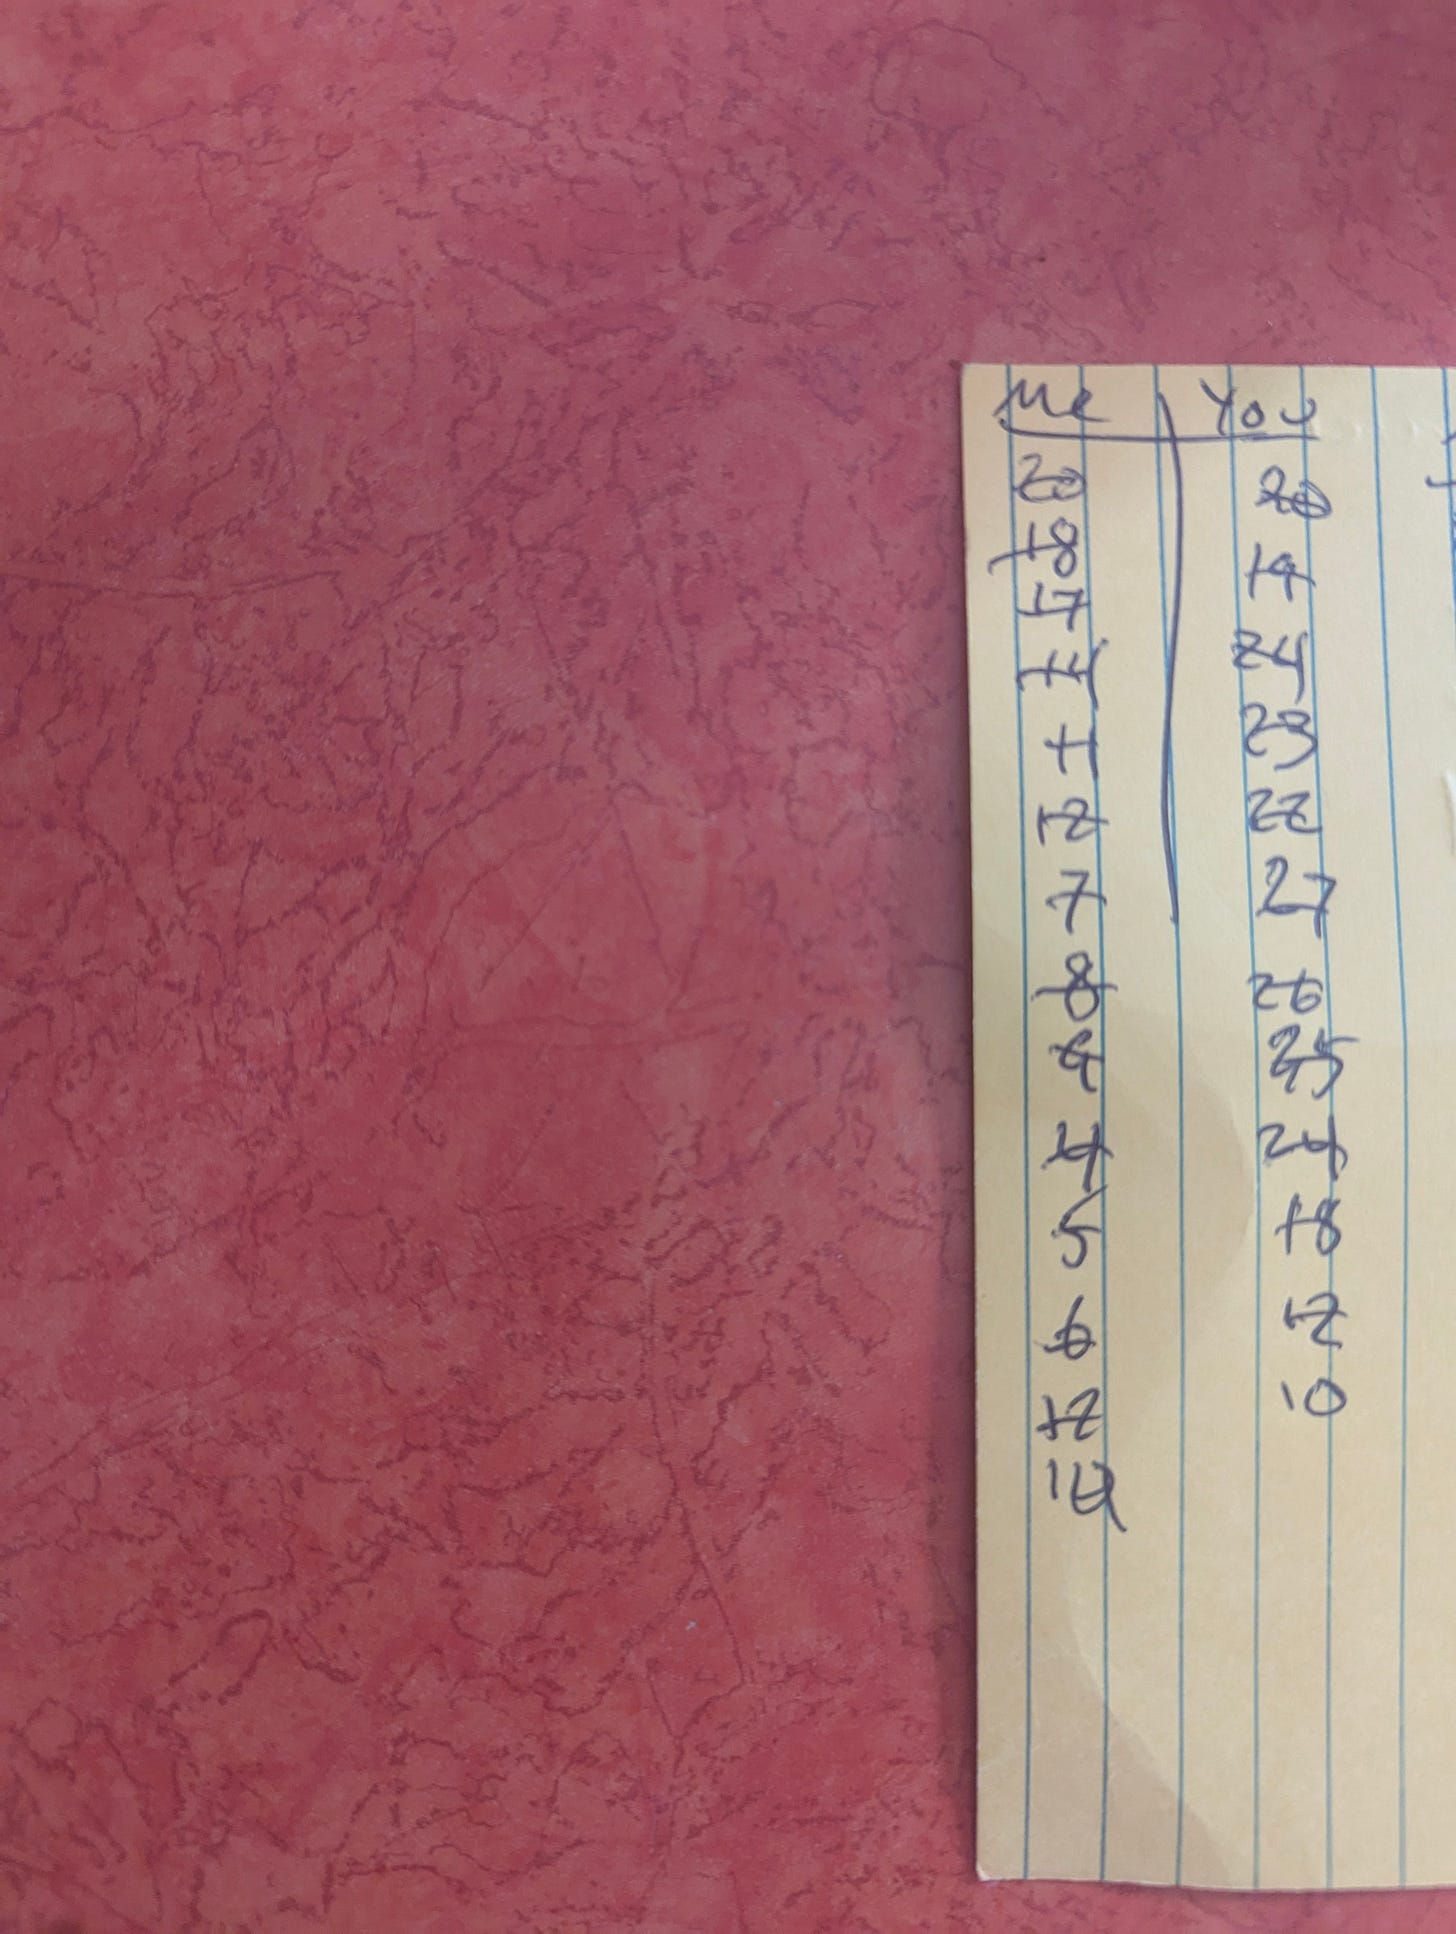 Me You
20 20
18 19
17 24
11 23
1 22
12 27
7 26
8 25
9 24
4 18
5 12
6 10
12
10